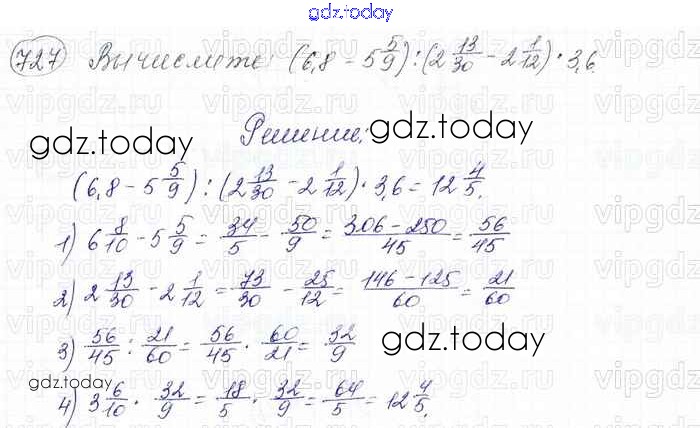 gdz.today
727 Вычислите: (6,8 - 5 5/9) : (2 13/30 - 2 1/12) · 3,6.
Решение:
gdz.today
gdz.today
(6,8 - 5 5/9) : (2 13/30 - 2 1/12) · 3,6 = 12 4/5.
1) 6 8/10 - 5 5/9 = 34/5 - 50/9 = 306-250/45 = 56/45
2) 2 13/30 - 2 1/12 = 73/30 - 25/12 = 146-125/60 = 21/60
3) 56/45 : 21/60 = 56/45 · 60/21 = 32/9
gdz.today
gdz.today
4) 3 6/10 · 32/9 = 18/5 · 32/9 = 64/5 = 12 4/5.
vipgdz.ru